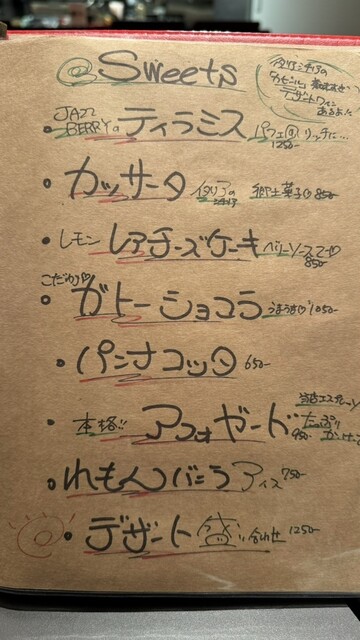 @Sweets
イタリアシチリアの
デザートワイン
あるよ!!
JAZZ
BERRYの ティラミス パフェ風リッチに…
1250-
カッサータ イタリアの 郷土菓子♡ 850-
シチリア
レモン レアチーズケーキ ベリーソースで♡
850-
こだわり♡
ガトーショコラ うまうま♡ 1050-
パンナコッタ 650-
本格!! アフォガード たっぷり
950- かけて
れもんバニラアイス 750-
デザート盛り合わせ 1250-